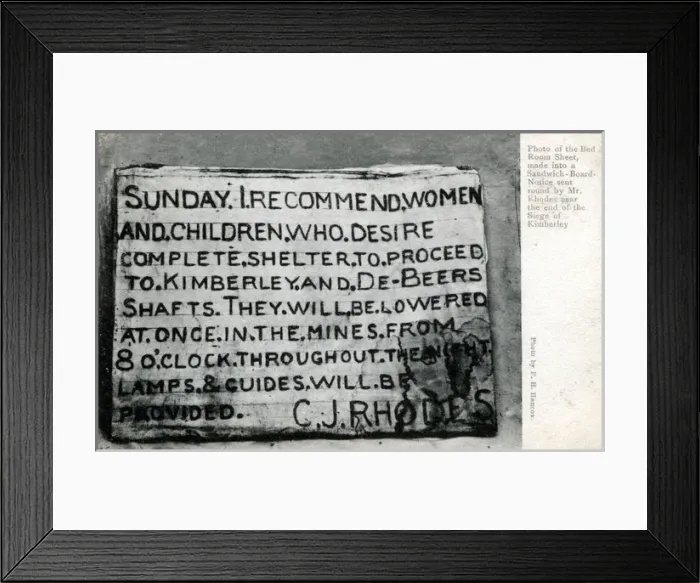 SUNDAY. I.RECOMMEND.WOMEN
AND.CHILDREN.WHO.DESIRE
COMPLETE.SHELTER.TO.PROCEED
TO.KIMBERLEY.AND.DE-BEERS
SHAFTS. THEY.WILL.BE.LOWERED
AT.ONCE.IN.THE.MINES.FROM
8 O'CLOCK.THROUGHOUT.THE.NIGHT.
LAMPS.&.GUIDES.WILL.BE
PROVIDED. C.J.RHODES
Photo of the Bed
Room Sheet,
made into a
Sandwich-Board-
Notice sent
round by Mr.
Rhodes near
the end of the
Siege of
Kimberley
Photo by F. H. Hancox